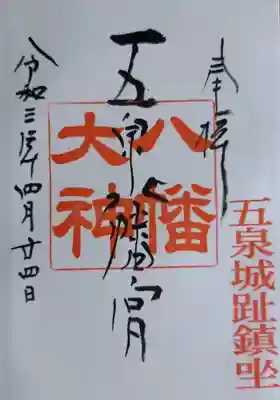 奉拝
五泉城趾鎮坐
八幡大神
五泉八幡宮
令和三年四月廿四日